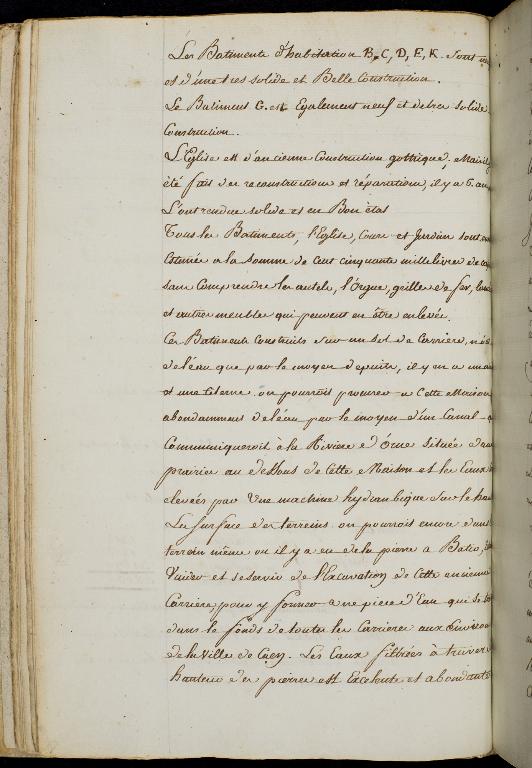 Les Batiments d'habitation B, C, D, E, K. sont
et d'une tres solide et Belle Construction.
Le Batiment G. est Egalement neuf et de tres solide
Construction.
L'Eglise est d'ancienne Construction gothique, Mais il y
été fait des reconstructions et réparations, il y a 6. ans
L'ont rendue solide et en Bon état
Tous les Batiments, l'Eglise, Cours et Jardin sont
Estimés a la somme de Cent cinquante mille livres de
sans Comprendre les autels, l'Orgue, grilles de fer,
et autres meubles qui peuvent en être enlevés.
Ces Batiments Construits sur un sol de Carriere, n'
de l'éau que par le moyen de puits, il y en a un
et une Citerne. on pourroit procurer a Cette Maison
abondamment de l'éau par le moyen d'un Canal
Communiqueroit à la Riviere d'Orne Située
prairie au dessous de Cette Maison et les Eaux
elevées par Une machine hydraubique sur le
La surface des terreins. on pourroit encore dans
terrein même ou il y a eu de la pierre a Batir,
Vuider et se servir de l'Excavation de Cette ancienne
Carriere, pour y former une piece d'Eau qui se
dans le fonds de toutes les Carriere aux Environ
de la Ville de Caen. Les Eaux filtrées à travers
hauteur des pierres est Excelente et abondante